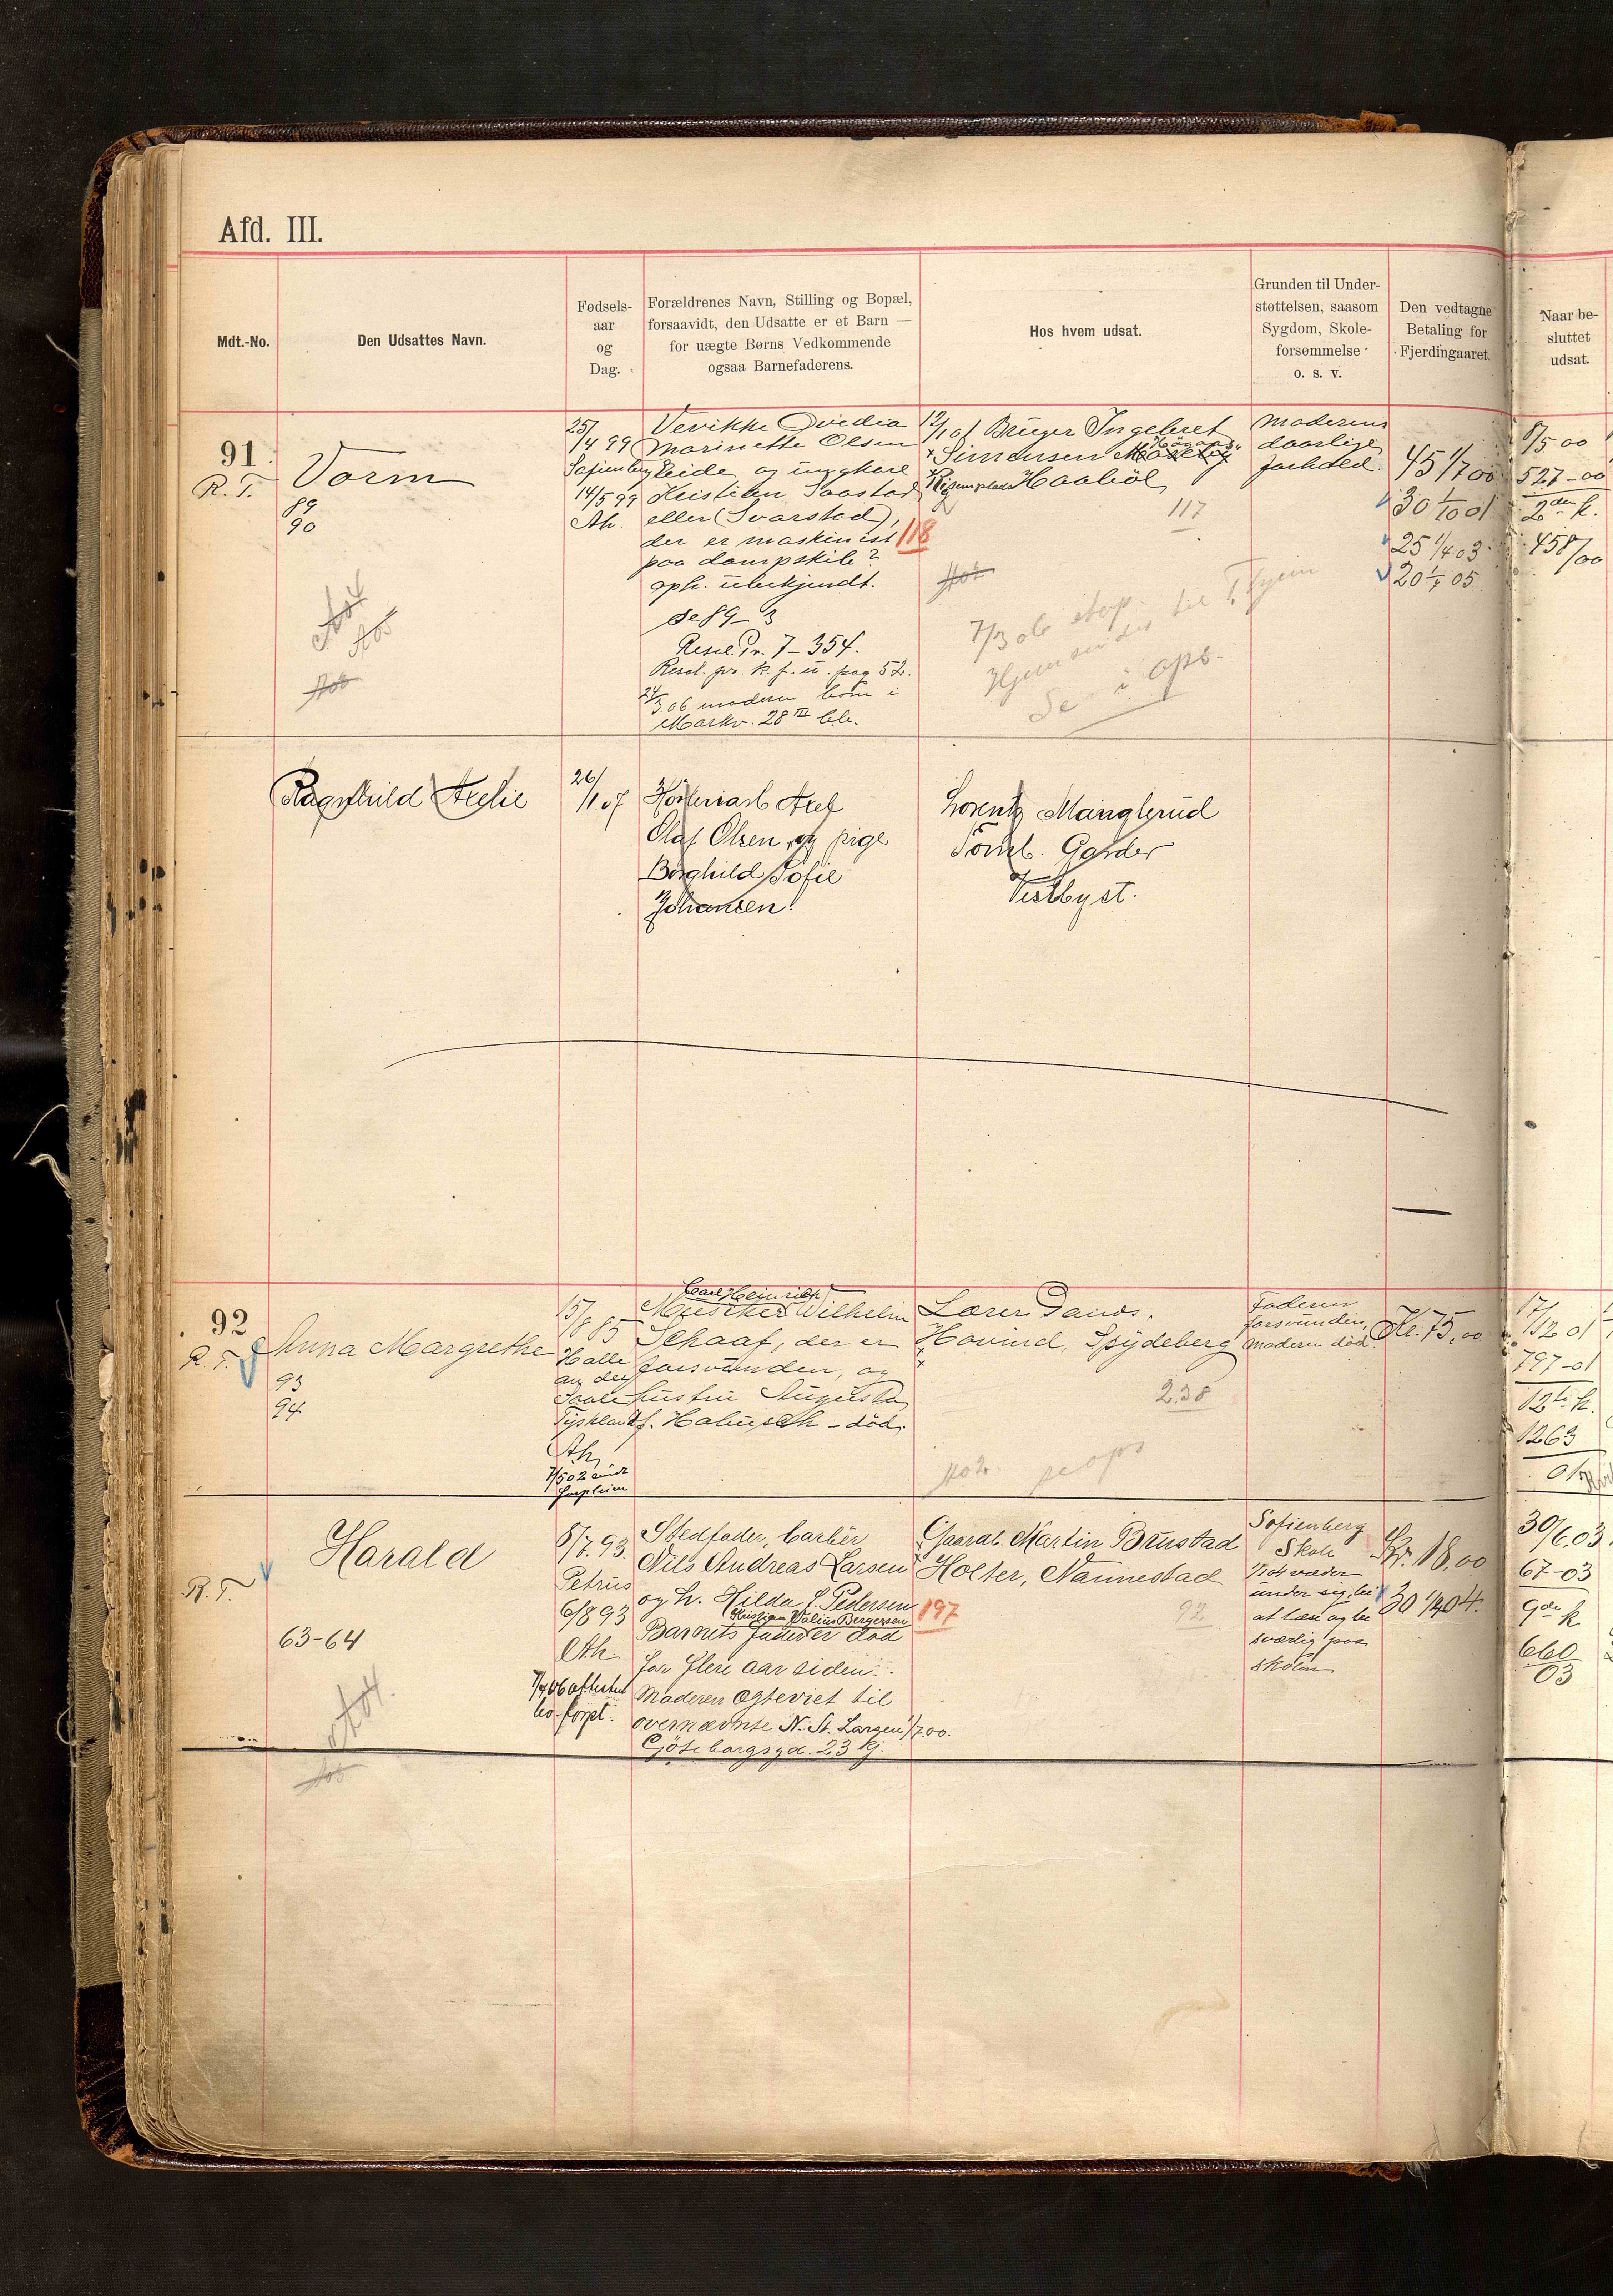 Afd. III.
Mdt.-No.
Den Udsattes Navn.
Fødsels-
aar
og
Dag.
Forældrenes Navn, Stilling og Bopæl,
forsaavidt, den Udsatte er et Barn —
for uægte Børns Vedkommende
ogsaa Barnefaderens.
Hos hvem udsat.
Grunden til Under-
støttelsen, saasom
Sygdom, Skole-
forsømmelse
o. s. v.
Den vedtagne
Betaling for
Fjerdingaaret.
Naar be-
sluttet
udsat.
91
R. T.
Vorm
89
90
25/
/4 99
Sofienberg
14/5 99
Ah.
Marinette Olsen
og ungkarl
Kristian Saastad
eller (Svarstad),
der er maskinist
paa dampskib?
oph. ubekjendt.
se 89-3
118
Resol. Pr. 7-354.
Resol. pr. k. f. u. pag 52.
24/3 06 moderen bom i
Markv. 28 III
Bruger Ingebret
Simensen
Haabøl
117
7/3 06
til T. hjem
Hjemsendes
Se i ops.
Moderens
daarlige
forhold.
45 1/7 00
30 1/10 01
25 1/4 03
20 1/7 05
8/5 00
527-00
2den k.
458/00
Ragnhild Axelie
26/
/1 07
Axel
Olaf Olsen og pige
Borghild Sofie
Johansen.
Lorentz Manglerud
Tomb. Garder
Vestbyst.
92
R. T.
Anna Margrethe
93
94
15/
/8 85
Halle
an der
Saale
Tyskland
Ah.
Carl Heinrich
Wilhelm
Schaaf, der er
forsvunden, og
hustru Augusta
f. Habusch - død.
Lærer Tands,
Hovind, Spydeberg
238
Faderen
forsvunden,
moderen død.
Kr. 75,00
17/12 01
797-01
12te k.
1263
01
Harald
R. T.
63-64
8/7 93
Petrus
6/8 93
Ah.
Stedfader, barbér
Nils Andreas Larsen
og h. Hilda E. Pedersen
Kristian Valius Bergersen
Barnets fader er død
for flere aar siden.
Moderen ægteviet til
overnævnte N. A. Larsen 1/7 00.
Göteborgsgd. 23 Kj.
197
Gaardb. Martin Brustad
Holter, Nannestad
92
Sofienberg
Skole
under sig, lei
at læse og be
sværlig paa
skolen
Kr. 18,00
30 1/4 04.
30/6 03.
67-03
9de k
660
03